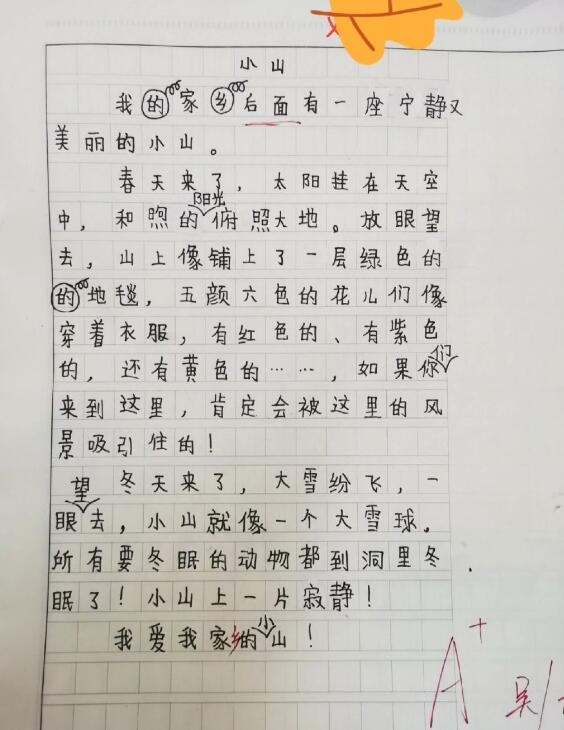 小山
我的家乡后面有一座宁静又
美丽的小山。
春天来了，太阳挂在天空
中，和煦的阳光俯照大地。放眼望
去，山上像铺上了一层绿色的
的地毯，五颜六色的花儿们像
穿着衣服，有红色的、有紫色
的，还有黄色的……，如果你们
来到这里，肯定会被这里的风
景吸引住的！
冬天来了，大雪纷飞，一
眼望去，小山就像一个大雪球。
所有要冬眠的动物都到洞里冬
眠了！小山上一片寂静！
我爱我家乡的小山！
A+
吴